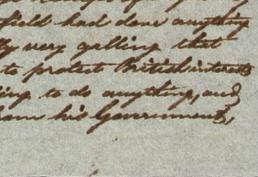 field had done anything
very galling that
to protect British interests
to do anything, and
his Government,